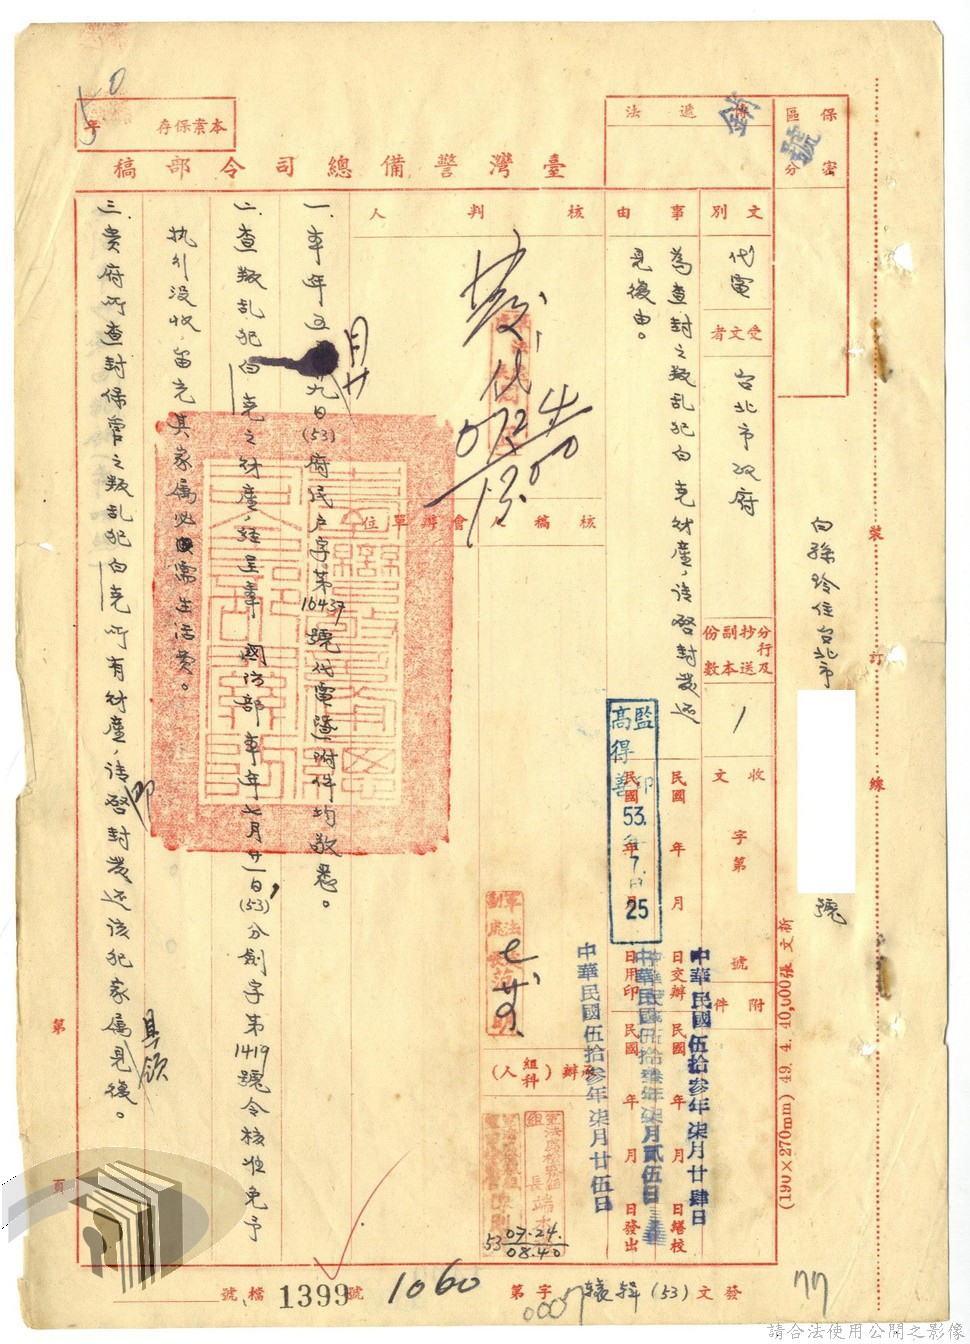 保密區分
號
傳遞法
本案保存
年
臺灣警備總司令部稿
文別
代電
受文者
台北市政府
分行及抄送副本份數
1
收文
字第
號
附件
事由
為查封之叛乱犯白克財產,請啓封發还
見後由。
核判人
發
核稿人
會辦單位
承辦(組科人)
一、本年五月廿九日(53)府民户字第16437號代電暨附件均敬悉。
二、查叛乱犯白克之財產,經呈奉 國防部本年七月廿一日,(53)
字第1419號令核准免予
执行没收,留充其家属必需生活費。
三、貴府所查封保管之叛乱犯白克所有財產,請即啓封發还該犯家属具領見後。
住台北市
號
裝
訂
線
監印
高得善
53.
7.
25
民國 年 月 日交辦
民國 年 月 日繕校
民國 年 月 日用印
民國 年 月 日發出
中華民國伍拾參年柒月廿肆日
中華民國伍拾參年柒月貳伍日
中華民國伍拾參年柒月廿伍日
(190×270mm) 49. 4. 40,000張 文新
07 24
1300
53 07.24. 08.40
發文(53)
字第
1060
號
檔號
1399
0007
77
第
頁
請合法使用公開之影像